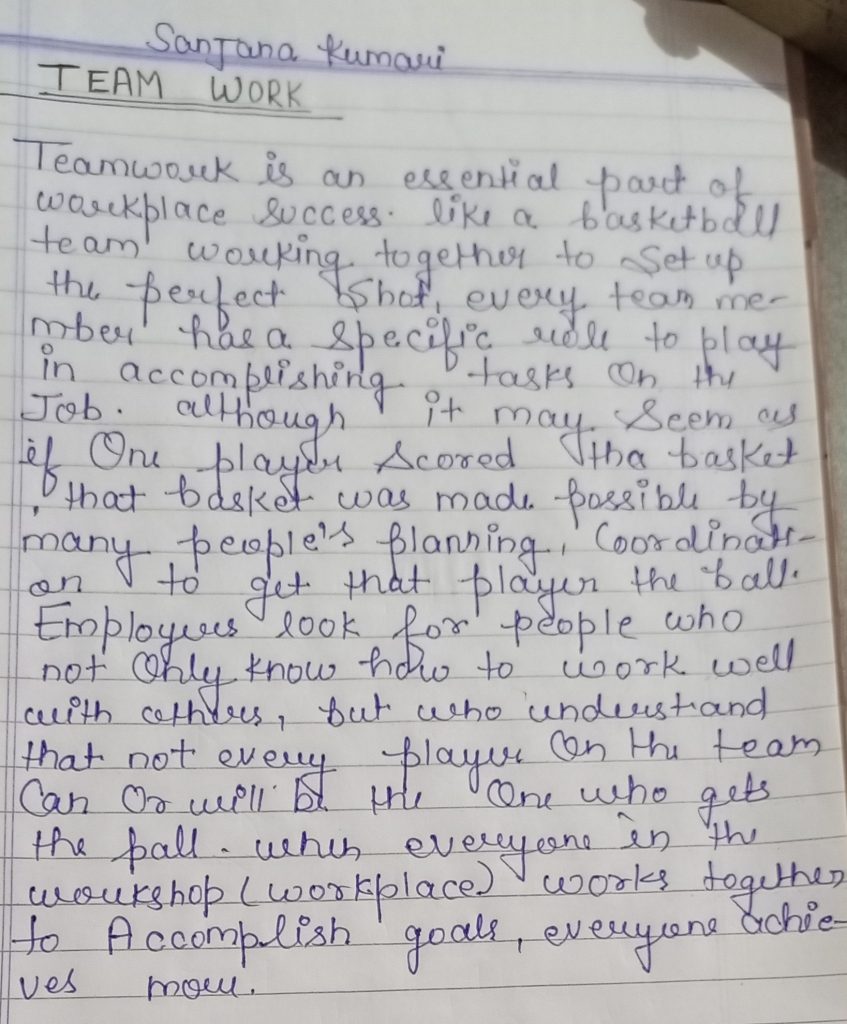 Sanjana Kumari
TEAM WORK
Teamwork is an essential part of
workplace success. like a basketball
team working together to set up
the perfect shot, every team me-
mber has a specific role to play
in accomplishing tasks on the
Job. although it may seem as
if One player scored tha basket
, that basket was made possible by
many people's planning, Coordinati-
on to get that player the ball.
Employers look for people who
not Only know how to work well
with others, but who understand
that not every player On the team
Can Or will be the One who gets
the ball. when everyone in the
workshop (workplace) works together
to Accomplish goals, everyone achie-
ves more.